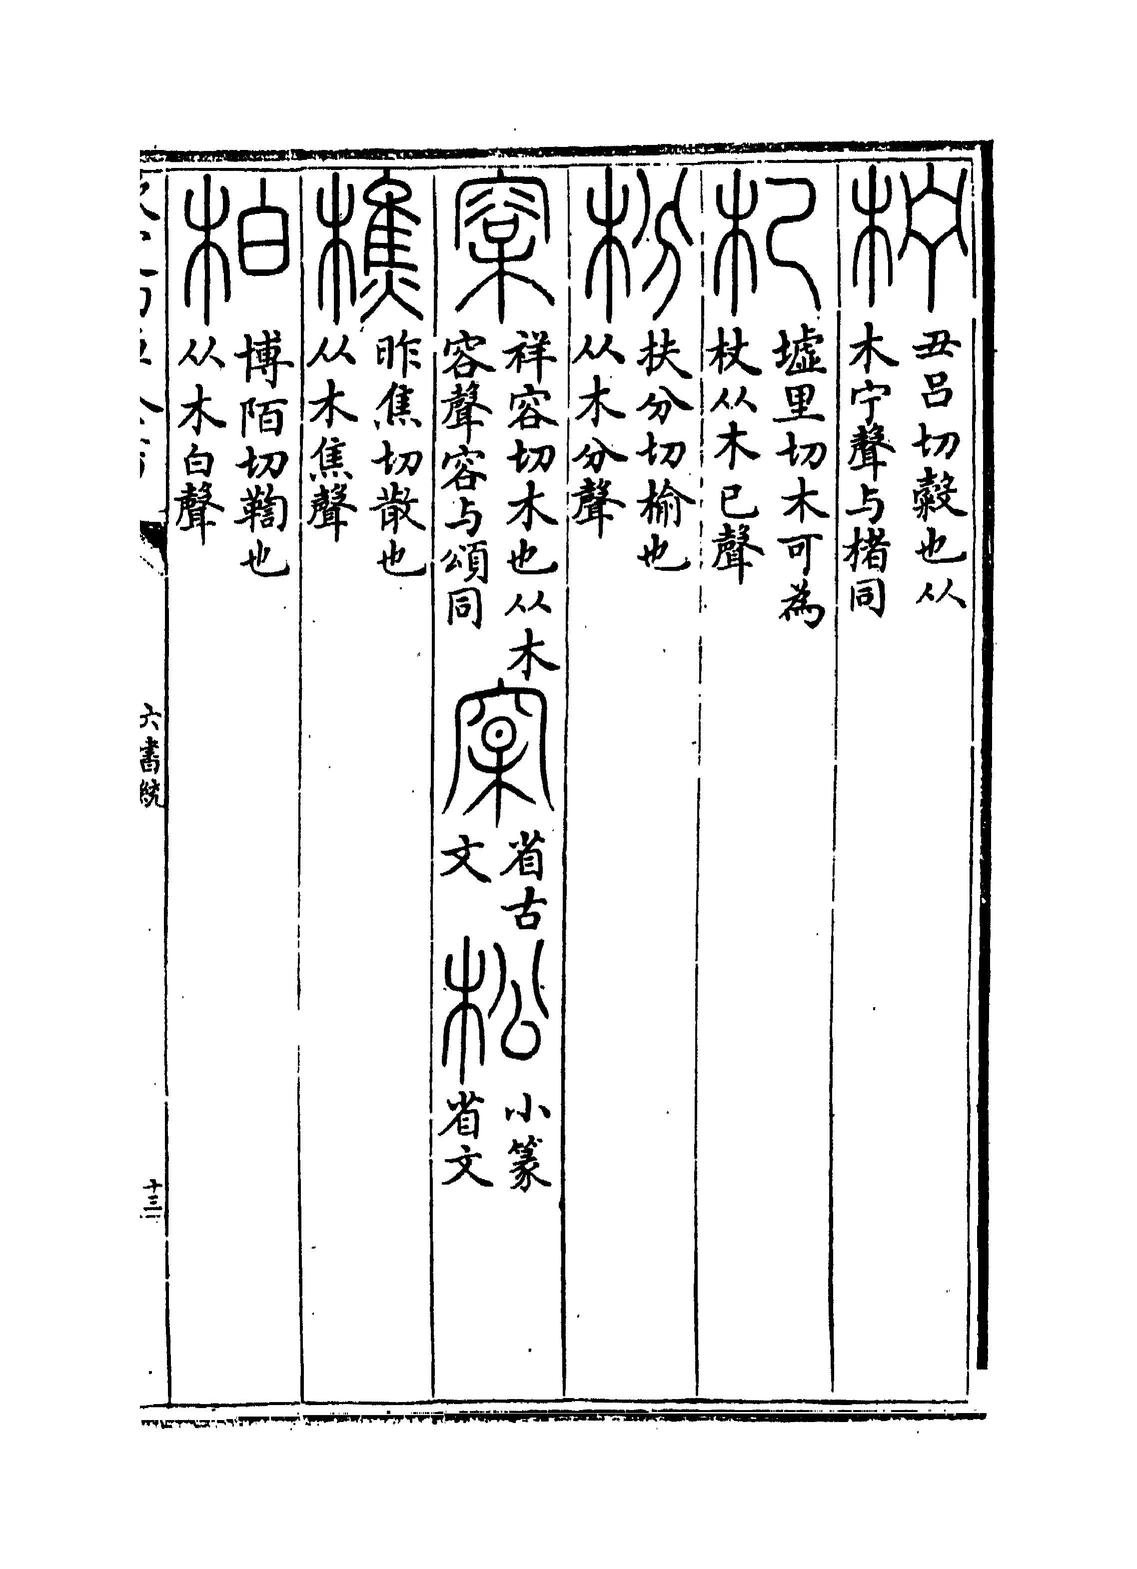 柠
丑呂切榖也从
木宁聲与楮同
杞
墟里切木可為
杖从木已聲
枌
扶分切榆也
从木分聲
㮤
祥容切木也从木
容聲容与頌同
省古
文
松
小篆
省文
樵
昨焦切散也
从木焦聲
柏
博陌切鞫也
从木白聲
六書統
十三